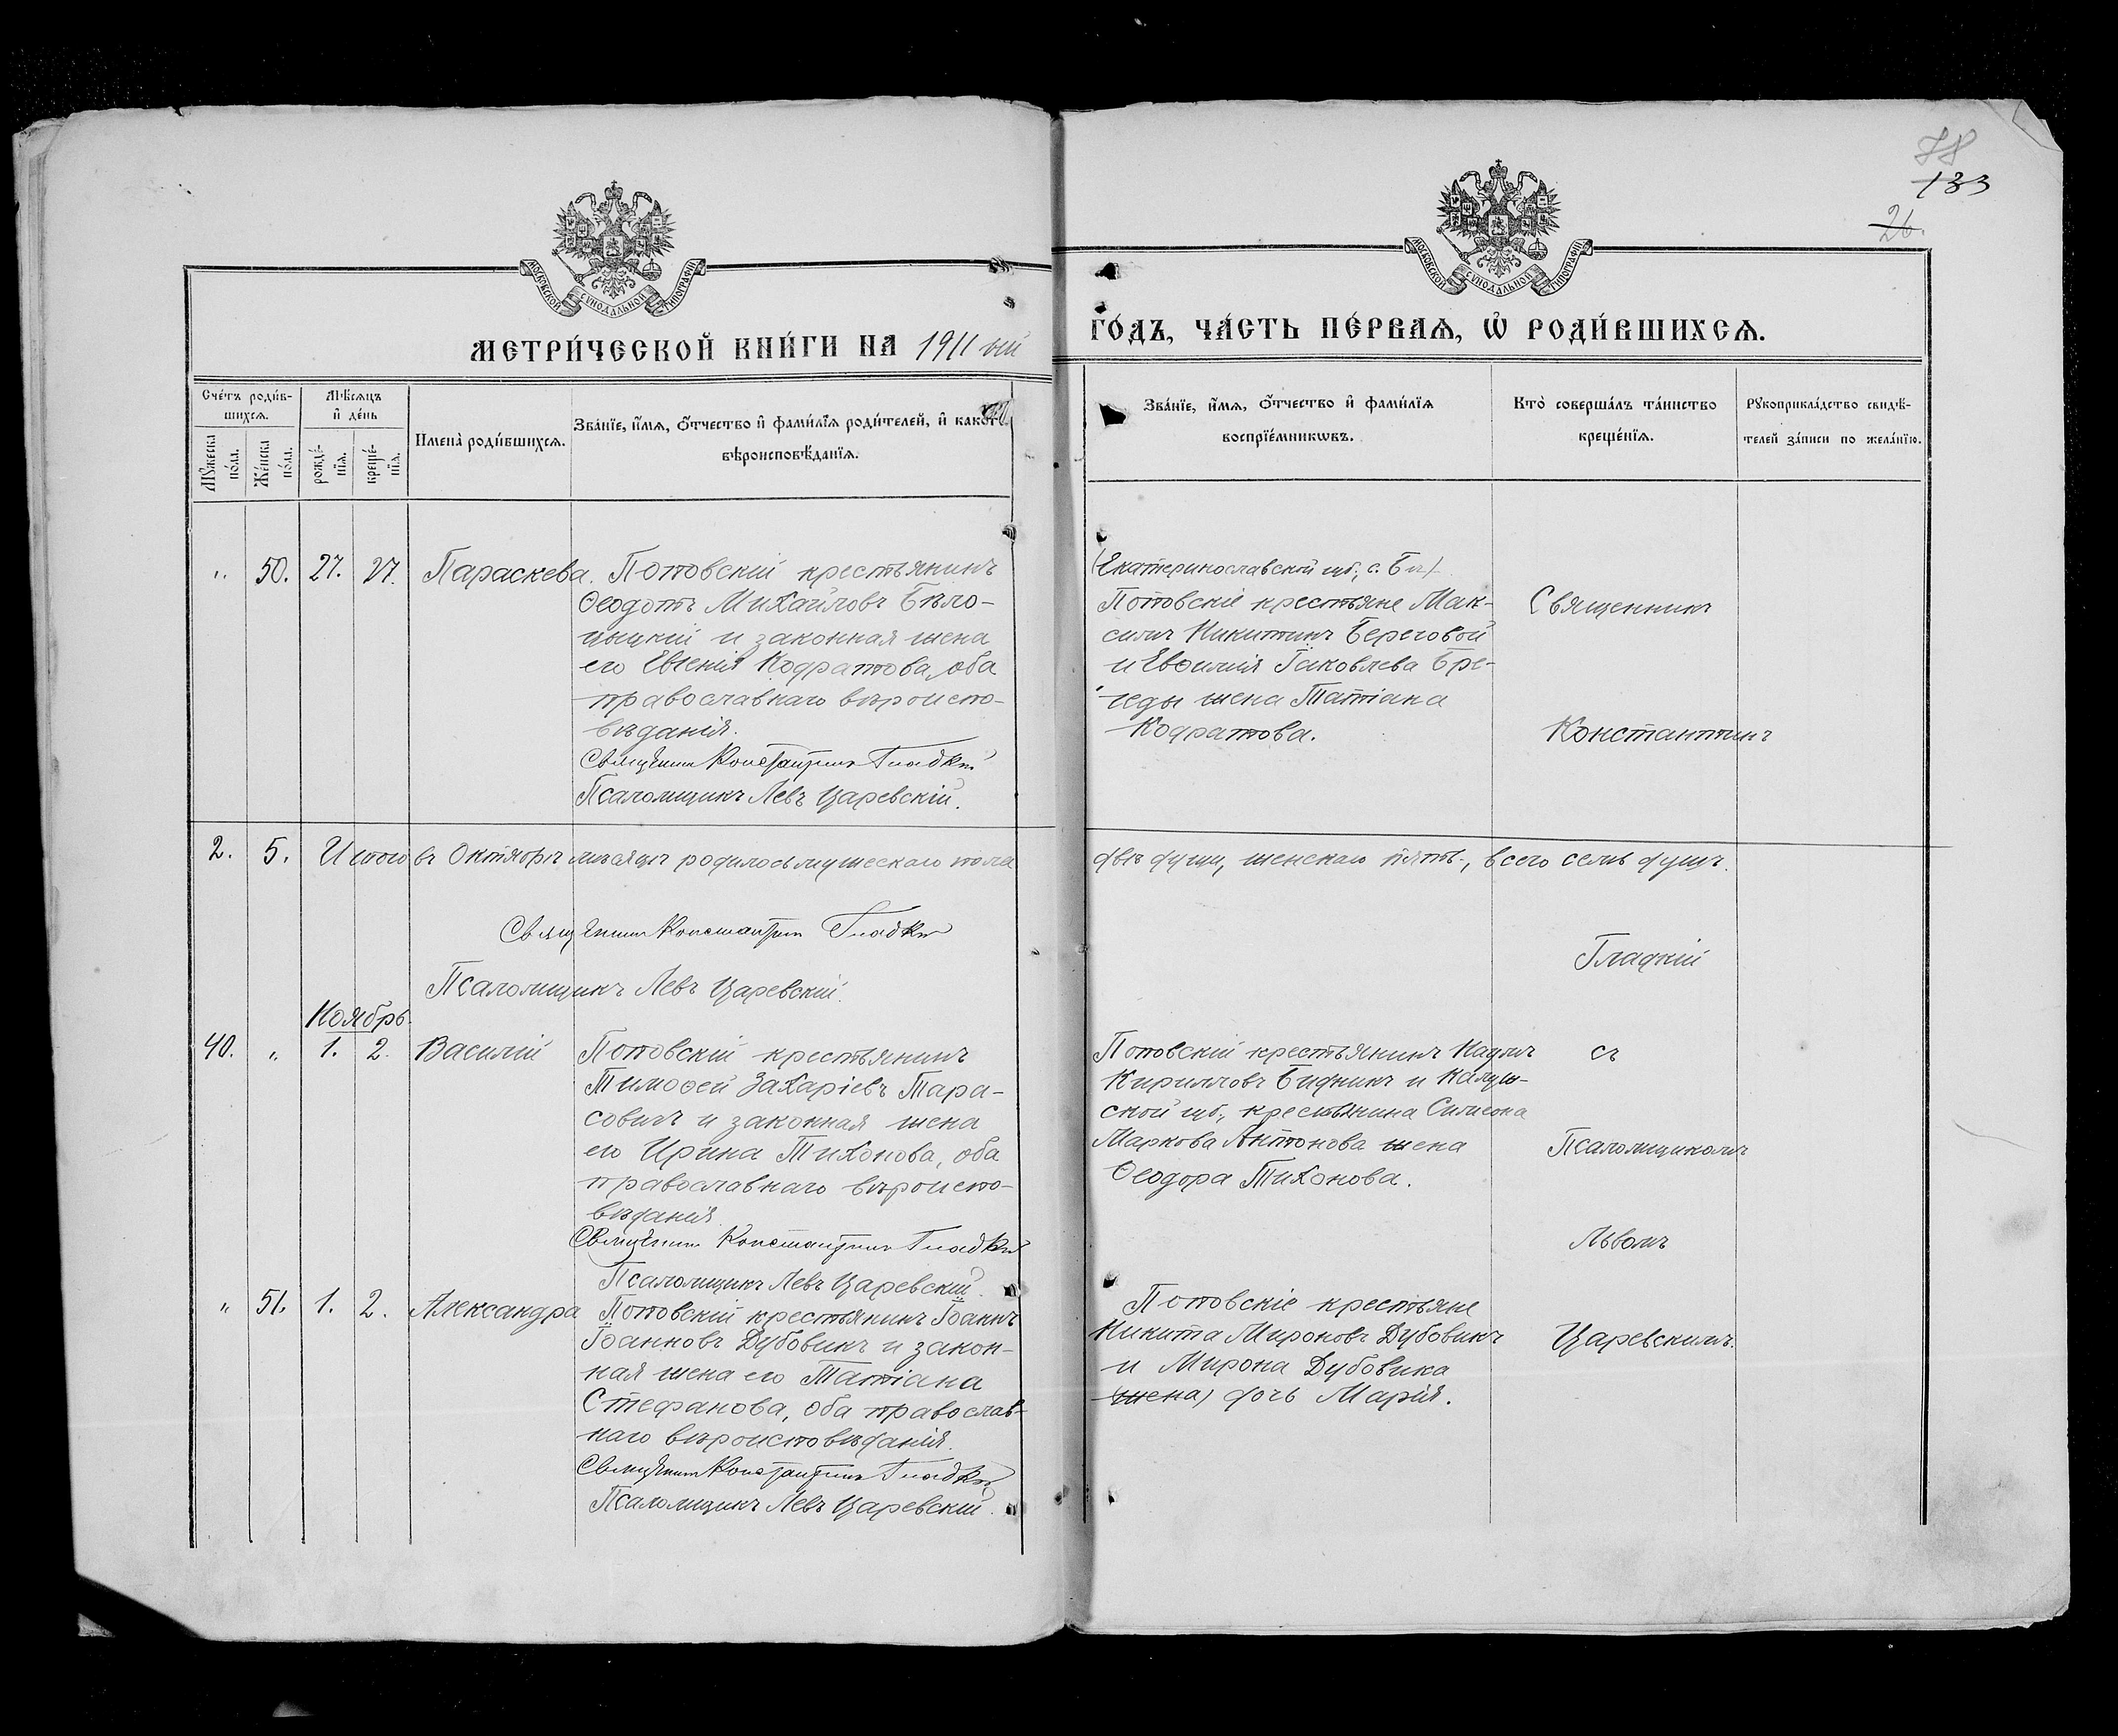 78
133
26.
МОСКОВСКОЙ СѴНОДАЛЬНОЙ ТИПОГРАФІИ
МОСКОВСКОЙ СѴНОДАЛЬНОЙ ТИПОГРАФІИ
МЕТРИ́ЧЕСКОЙ КНИ́ГИ НА 1911 ый
ГО́ДЪ, ЧА́СТЬ ПЕ́РВАѦ, Ѡ҆ РОДИ́ВШИХСѦ.
Сче́тъ роди́в-
шихсѧ.
Мꙋжеска по́ла.
Же́нска по́ла.
Мѣ́сѧцъ
и҆ де́нь
рожде́-
нїѧ.
креще́-
нїѧ.
Имена̀ роди́вшихсѧ.
Зва́нїе, и҆́мѧ, ѻ҆́тчество и҆ фами́лїѧ роди́телей, и҆ како́гѡ
вѣроисповѣ́данїѧ.
Зва́нїе, и҆́мѧ, ѻ҆́тчество и҆ фами́лїѧ
воспрїе́мникѡвъ.
Кто̀ соверша́лъ та́инство
креще́нїѧ.
Рꙋкоприкла́дство свидѣ́-
телей за́писи по жела́нїю.
" 50. 27. 27. Параскева. Поповскій крестьянинъ
Ѳеодотъ Михайловъ Бѣло-
цыцкій и законная жена
его Евгенія Кодратова, оба
православнаго вѣроиспо-
вѣданія.
Священникъ Константинъ Гладкій
Псаломщикъ Левъ Царевскій.
(Екатеринославской губ., с.
Поповскіе крестьяне Мак-
симъ Никитинъ Береговой
и Евѳимія Іаковлева Бре-
геды жена Татіана
Кодратова.
Священникъ
Константинъ
2. 5. Итого въ Октябрѣ мѣсяцѣ родилось мужескаго пола
двѣ души, женскаго пять, всего семь душъ.
Священникъ Константинъ Гладкій
Псаломщикъ Левъ Царевскій.
Гладкій
Ноябрь.
40. " 1. 2. Василій Поповскій крестьянинъ
Тимоѳей Захаріевъ Тара-
совичъ и законная жена
его Ирина Тихонова, оба
православнаго вѣроиспо-
вѣданія.
Священникъ Константинъ Гладкій
Псаломщикъ Левъ Царевскій.
Поповскій крестьянинъ Наумъ
Кирилловъ Бидникъ и Калуж-
ской губ., крестьянина Симеона
Маркова Антонова жена
Ѳеодора Тихонова.
съ
Псаломщикомъ
Львомъ
" 51. 1. 2. Александра Поповскій крестьянинъ Іоаннъ
Іоанновъ Дубовикъ и закон-
ная жена его Татіана
Стефанова, оба православ-
наго вѣроисповѣданія.
Священникъ Константинъ Гладкій
Псаломщикъ Левъ Царевскій.
Поповскіе крестьяне
Никита Мироновъ Дубовикъ
и Мирона Дубовика
(жена) дочь Марія.
Царевскимъ.